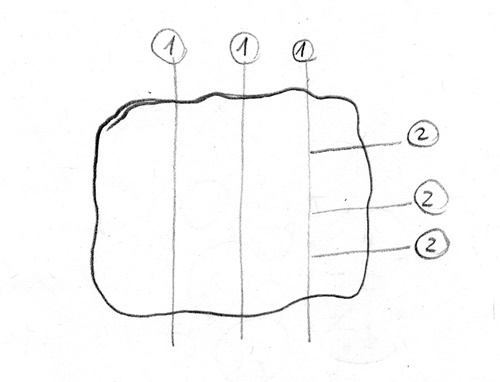 1 1 1
2
2
2